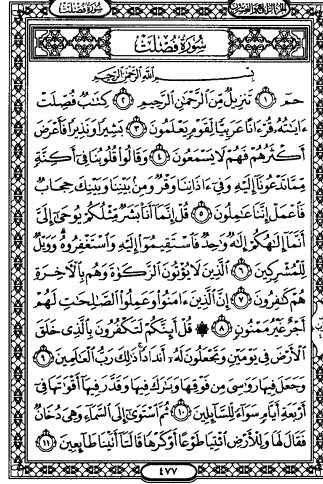 سُورَةُ فُصِّلَتْ
سُورَةُ فُصِّلَتْ
بِسْمِ اللَّهِ الرَّحْمَٰنِ الرَّحِيمِ
حمٓ ﴿١﴾ تَنزِيلٌ مِّنَ ٱلرَّحْمَٰنِ ٱلرَّحِيمِ ﴿٢﴾ كِتَٰبٌ فُصِّلَتْ
ءَايَٰتُهُۥ قُرْءَانًا عَرَبِيًّا لِّقَوْمٍ يَعْلَمُونَ ﴿٣﴾ بَشِيرًا وَنَذِيرًا فَأَعْرَضَ
أَكْثَرُهُمْ فَهُمْ لَا يَسْمَعُونَ ﴿٤﴾ وَقَالُوا۟ قُلُوبُنَا فِىٓ أَكِنَّةٍ
مِّمَّا تَدْعُونَآ إِلَيْهِ وَفِىٓ ءَاذَانِنَا وَقْرٌ وَمِنۢ بَيْنِنَا وَبَيْنِكَ حِجَابٌ
فَٱعْمَلْ إِنَّنَا عَٰمِلُونَ ﴿٥﴾ قُلْ إِنَّمَآ أَنَا۠ بَشَرٌ مِّثْلُكُمْ يُوحَىٰٓ إِلَىَّ
أَنَّمَآ إِلَٰهُكُمْ إِلَٰهٌ وَٰحِدٌ فَٱسْتَقِيمُوٓا۟ إِلَيْهِ وَٱسْتَغْفِرُوهُ وَوَيْلٌ
لِّلْمُشْرِكِينَ ﴿٦﴾ ٱلَّذِينَ لَا يُؤْتُونَ ٱلزَّكَوٰةَ وَهُم بِٱلْـَٔاخِرَةِ
هُمْ كَٰفِرُونَ ﴿٧﴾ إِنَّ ٱلَّذِينَ ءَامَنُوا۟ وَعَمِلُوا۟ ٱلصَّٰلِحَٰتِ لَهُمْ
أَجْرٌ غَيْرُ مَمْنُونٍ ﴿٨﴾ ۞ قُلْ أَئِنَّكُمْ لَتَكْفُرُونَ بِٱلَّذِى خَلَقَ
ٱلْأَرْضَ فِى يَوْمَيْنِ وَتَجْعَلُونَ لَهُۥٓ أَندَادًا ذَٰلِكَ رَبُّ ٱلْعَٰلَمِينَ ﴿٩﴾
وَجَعَلَ فِيهَا رَوَٰسِىَ مِن فَوْقِهَا وَبَٰرَكَ فِيهَا وَقَدَّرَ فِيهَآ أَقْوَٰتَهَا فِىٓ
أَرْبَعَةِ أَيَّامٍ سَوَآءً لِّلسَّآئِلِينَ ﴿١٠﴾ ثُمَّ ٱسْتَوَىٰٓ إِلَى ٱلسَّمَآءِ وَهِىَ دُخَانٌ
فَقَالَ لَهَا وَلِلْأَرْضِ ٱئْتِيَا طَوْعًا أَوْ كَرْهًا قَالَتَآ أَتَيْنَا طَآئِعِينَ ﴿١١﴾
٤٧٧